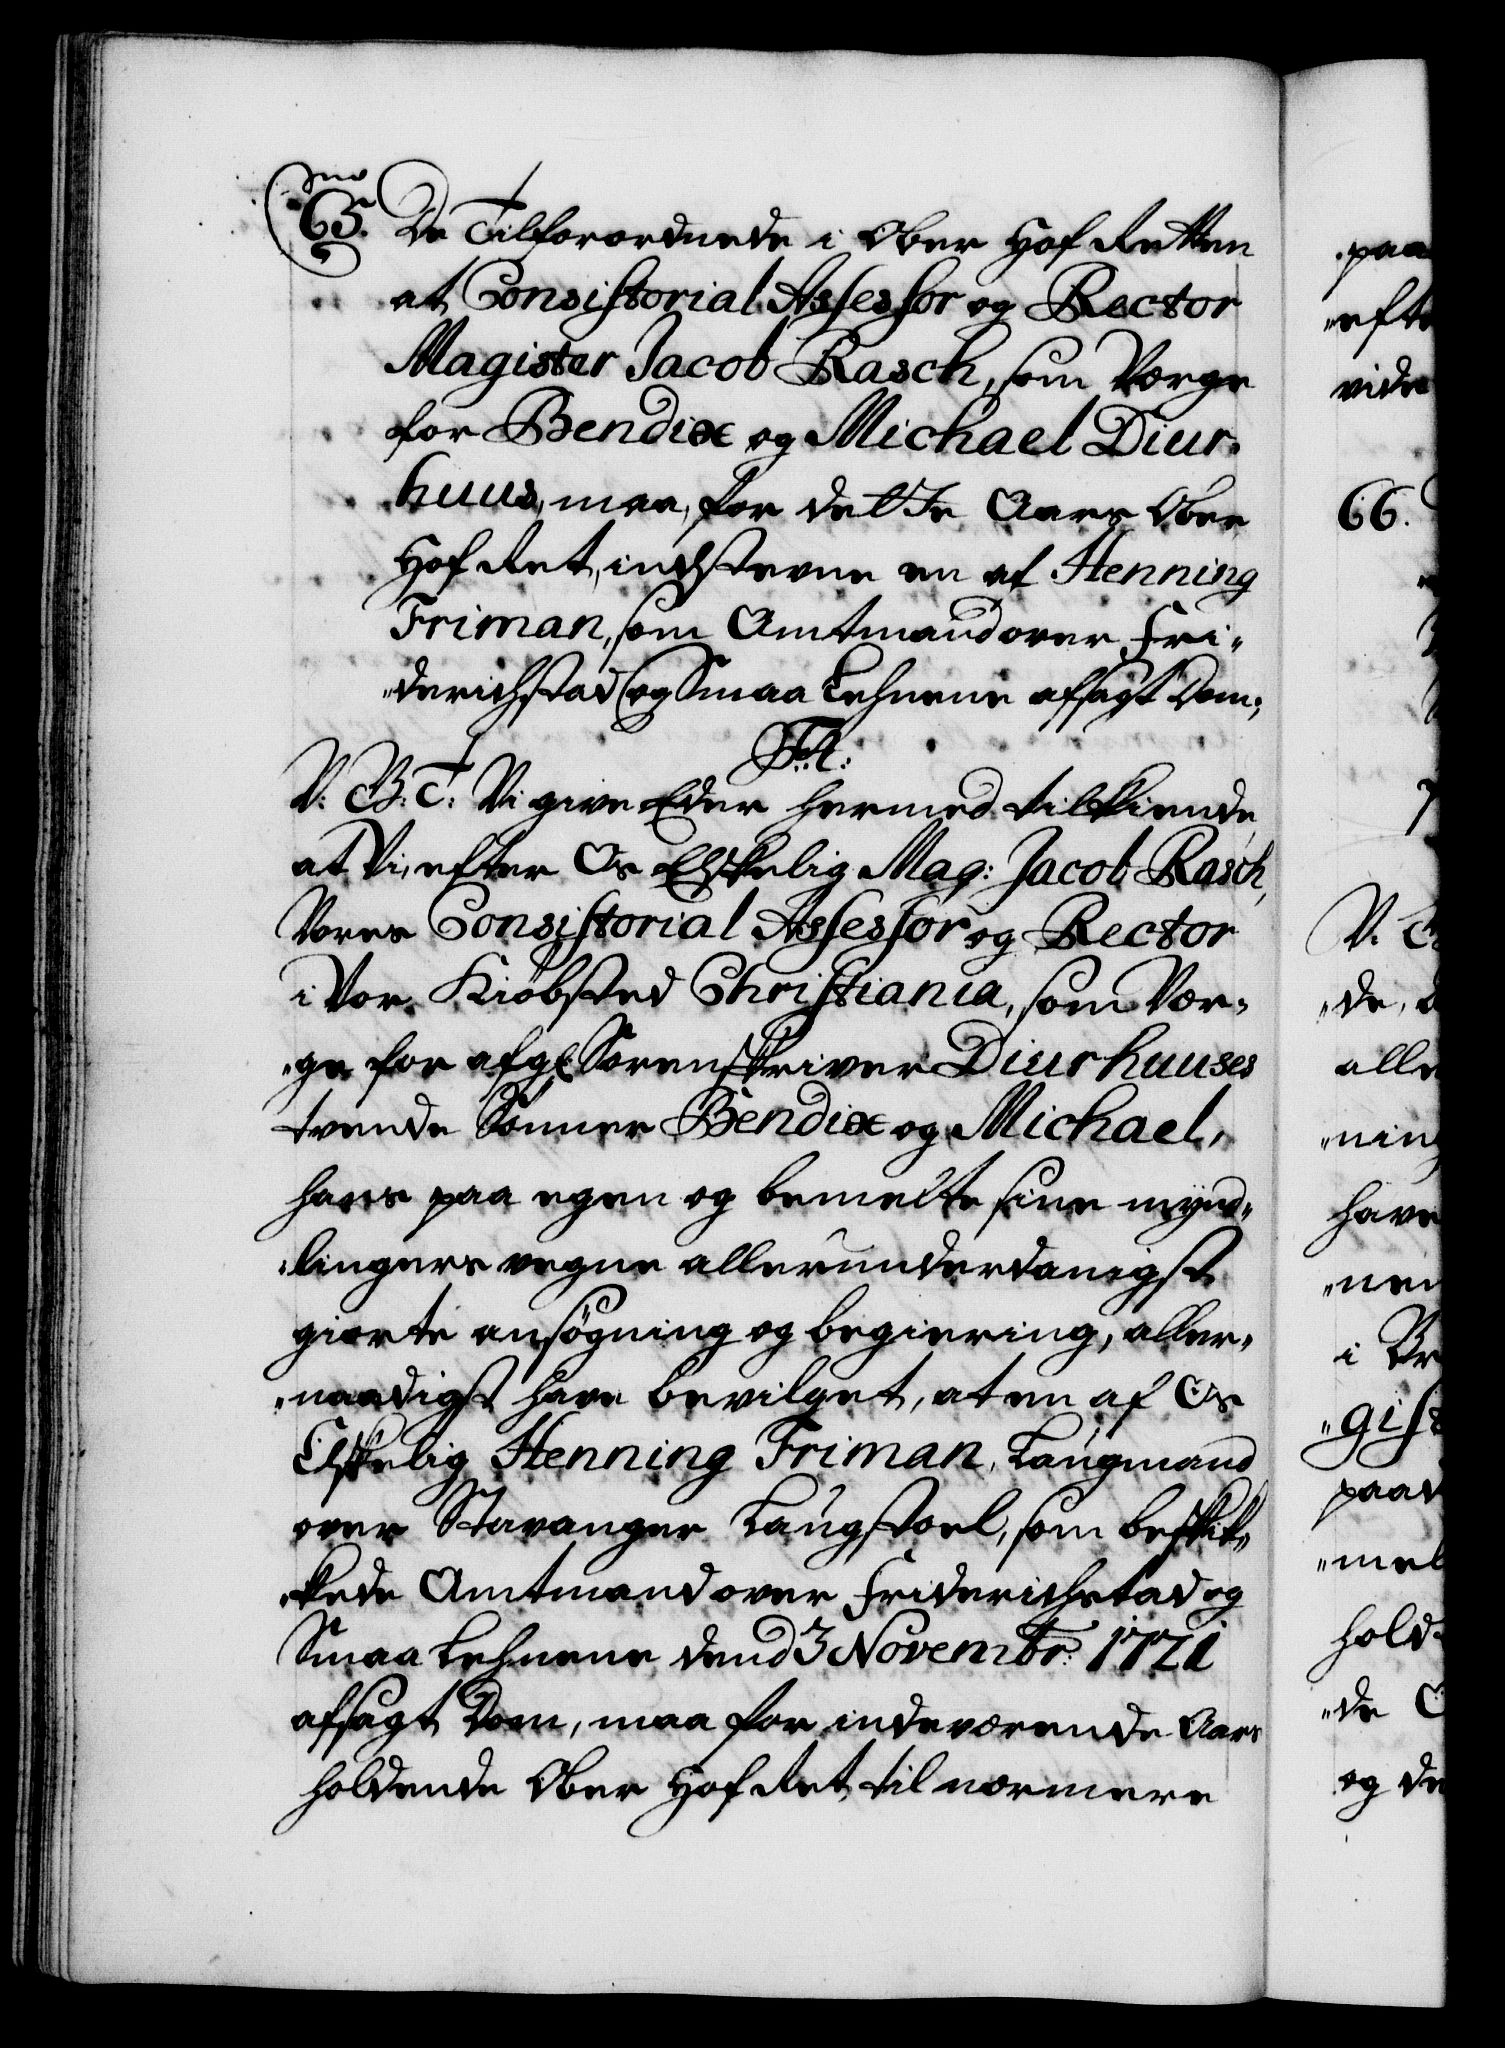 No
65. De Tilforordnede i Ober Hof Retten
at Consistorial Assessor og Rector
Magister Jacob Rasch, som Værge
for Bendix og Michael Diur-
huus, maa, for dette Aars Ober
Hof Ret, indstevne en af Henning
Friman, som Amtmand over Fri-
derichstad og Smaa Lehnene afsagt Dom;
F. 4.
V: G: T: Vi give Eder hermed tilkiende,
at Vi, efter Os Elskelig Mag: Jacob Rasch,
Vores Consistorial Assessor og Rector
i Vor Kiøbsted Christiania, som Vær-
ge for afg: Sorenskriver Diurhuuses
tvende Sønner Bendix og Michael,
hans paa egen og bemelte sine mynd-
lingers vegne allerunderdanigst
giorte ansøgning og begiering, aller-
naadigst have bevilget, at en af Os
Elskelig Henning Friman, Laugmand
over Stavanger Laugstoel, som beskik-
kede Amtmand over Friderichstad og
Smaa Lehnene dend 3 Novembr: 1721
afsagt Dom, maa for indeværende Aars
holdende Ober Hof Ret til nærmere
paa
efte
vide
66.
V.
de,
alle
ning
have
nen
i Br
gist
paad
mel
hold
de
og de